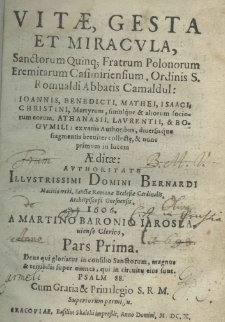 VITÆ, GESTA
ET MIRACVLA,
Sanctorum Quinq; Fratrum Polonorum
Eremitarum Casimiriensium, Ordinis S.
Romualdi Abbatis Camaldul:
IOANNIS, BENEDICTI, MATHEI, ISAACI,
CHRISTINI, Martyrum, simulque & aliorum sociorum
eorum, ATHANASII, LAVRENTII, & BOGVMILI:
ex varijs Authoribus, diuersisque
fragmentis breuiter collectæ, & nunc
primum in lucem
Æditæ:
AVTHORITATE
ILLVSTRISSIMI DOMINI BERNARDI
Macieiowski, Sanctæ Romanæ Ecclesiæ Cardinalis,
Archiepiscopi Gnesnensis,
1606.
A MARTINO BARONIO IAROSLAuiense
Clerico,
Pars Prima.
Deus qui gloriatur in consilio Sanctorum, magnus
& terribilis super omnes, qui in circuitu eius sunt.
PSALM 88.
Cum Gratia & Priuilegio S. R. M.
Superiorum permissu.
CRACOVIAE, Anno Domini, M. DC. X.